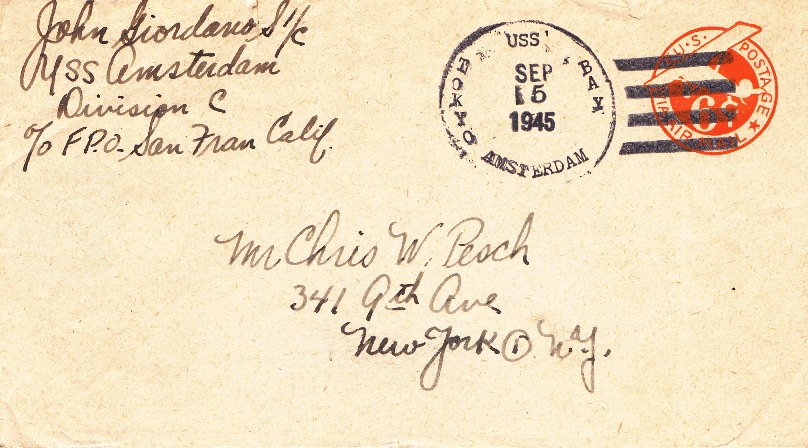 John Giordano S1/c
USS Amsterdam
Division C
c/o F.P.O. San Fran Calif.
USS
TOKYO BAY
SEP
15
1945
AMSTERDAM
U.S. POSTAGE
6¢
VIA AIR MAIL
Mr Chris W. Pesch
341 9th Ave
New York ① N.Y.